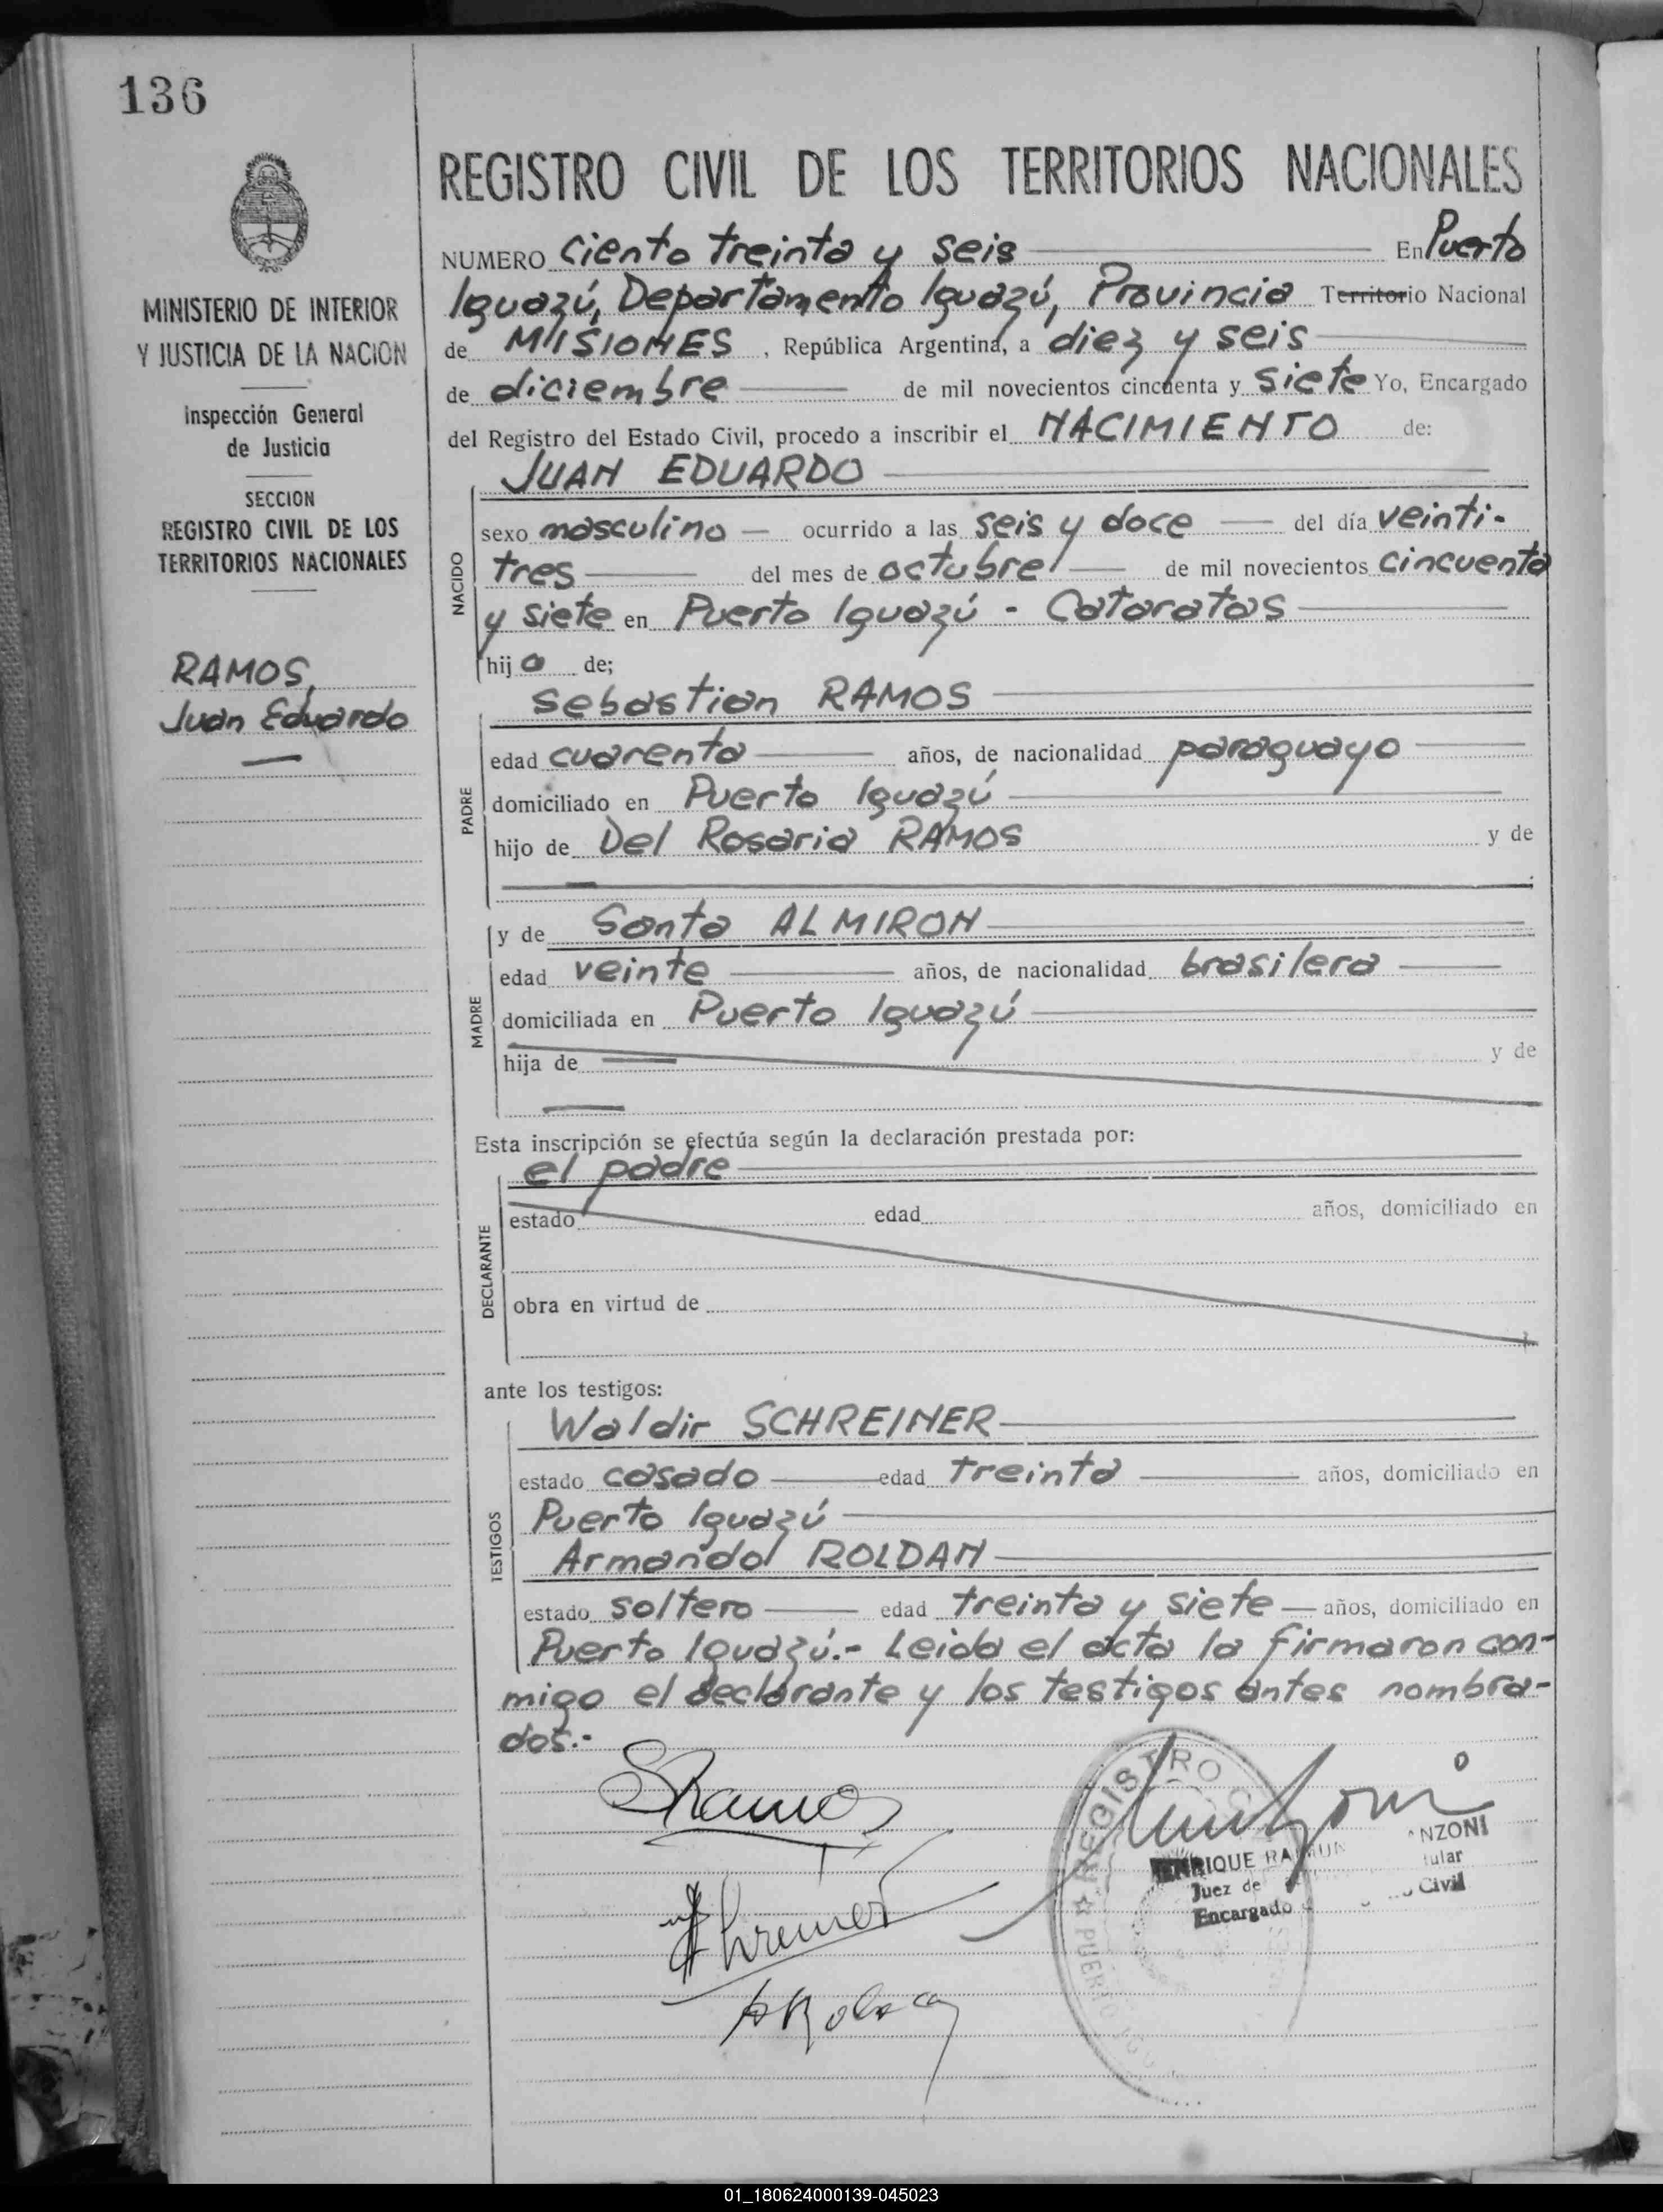 136
MINISTERIO DE INTERIOR
Y JUSTICIA DE LA NACION
Inspección General
de Justicia
SECCION
REGISTRO CIVIL DE LOS
TERRITORIOS NACIONALES
RAMOS,
Juan Eduardo
REGISTRO CIVIL DE LOS TERRITORIOS NACIONALES
NUMERO Ciento treinta y seis En Puerto
Iguazú, Departamento Iguazú, Provincia Territorio Nacional
de MISIONES, República Argentina, a diez y seis
de diciembre de mil novecientos cincuenta y siete Yo, Encargado
del Registro del Estado Civil, procedo a inscribir el NACIMIENTO de:
JUAN EDUARDO
NACIDO
sexo masculino — ocurrido a las seis y doce del día veinti-
tres del mes de octubre de mil novecientos cincuenta
y siete en Puerto Iguazú - Cataratas
hijo de;
PADRE
Sebastian RAMOS
edad cuarenta años, de nacionalidad paraguayo
domiciliado en Puerto Iguazú
hijo de Del Rosaria RAMOS y de
MADRE
y de Santa ALMIRON
edad veinte años, de nacionalidad brasilera
domiciliada en Puerto Iguazú
hija de y de
Esta inscripción se efectúa según la declaración prestada por:
DECLARANTE
el padre
estado edad años, domiciliado en
obra en virtud de
ante los testigos:
TESTIGOS
Waldir SCHREINER
estado casado edad treinta años, domiciliado en
Puerto Iguazú
Armando ROLDAN
estado soltero edad treinta y siete — años, domiciliado en
Puerto Iguazú.- Leida el acta la firmaron con-
migo el declarante y los testigos antes nombra-
dos.-
SRamos
REGISTRO
PUERTO
ENRIQUE
Juez de
Encargado Civil
01_180624000139-045023